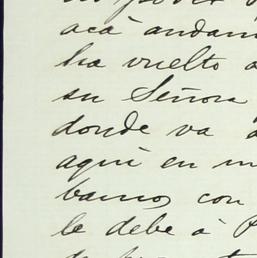 acá andam
ha vuelto a
su Señora
donde va a
aquí en m
bamos con
le debe á P